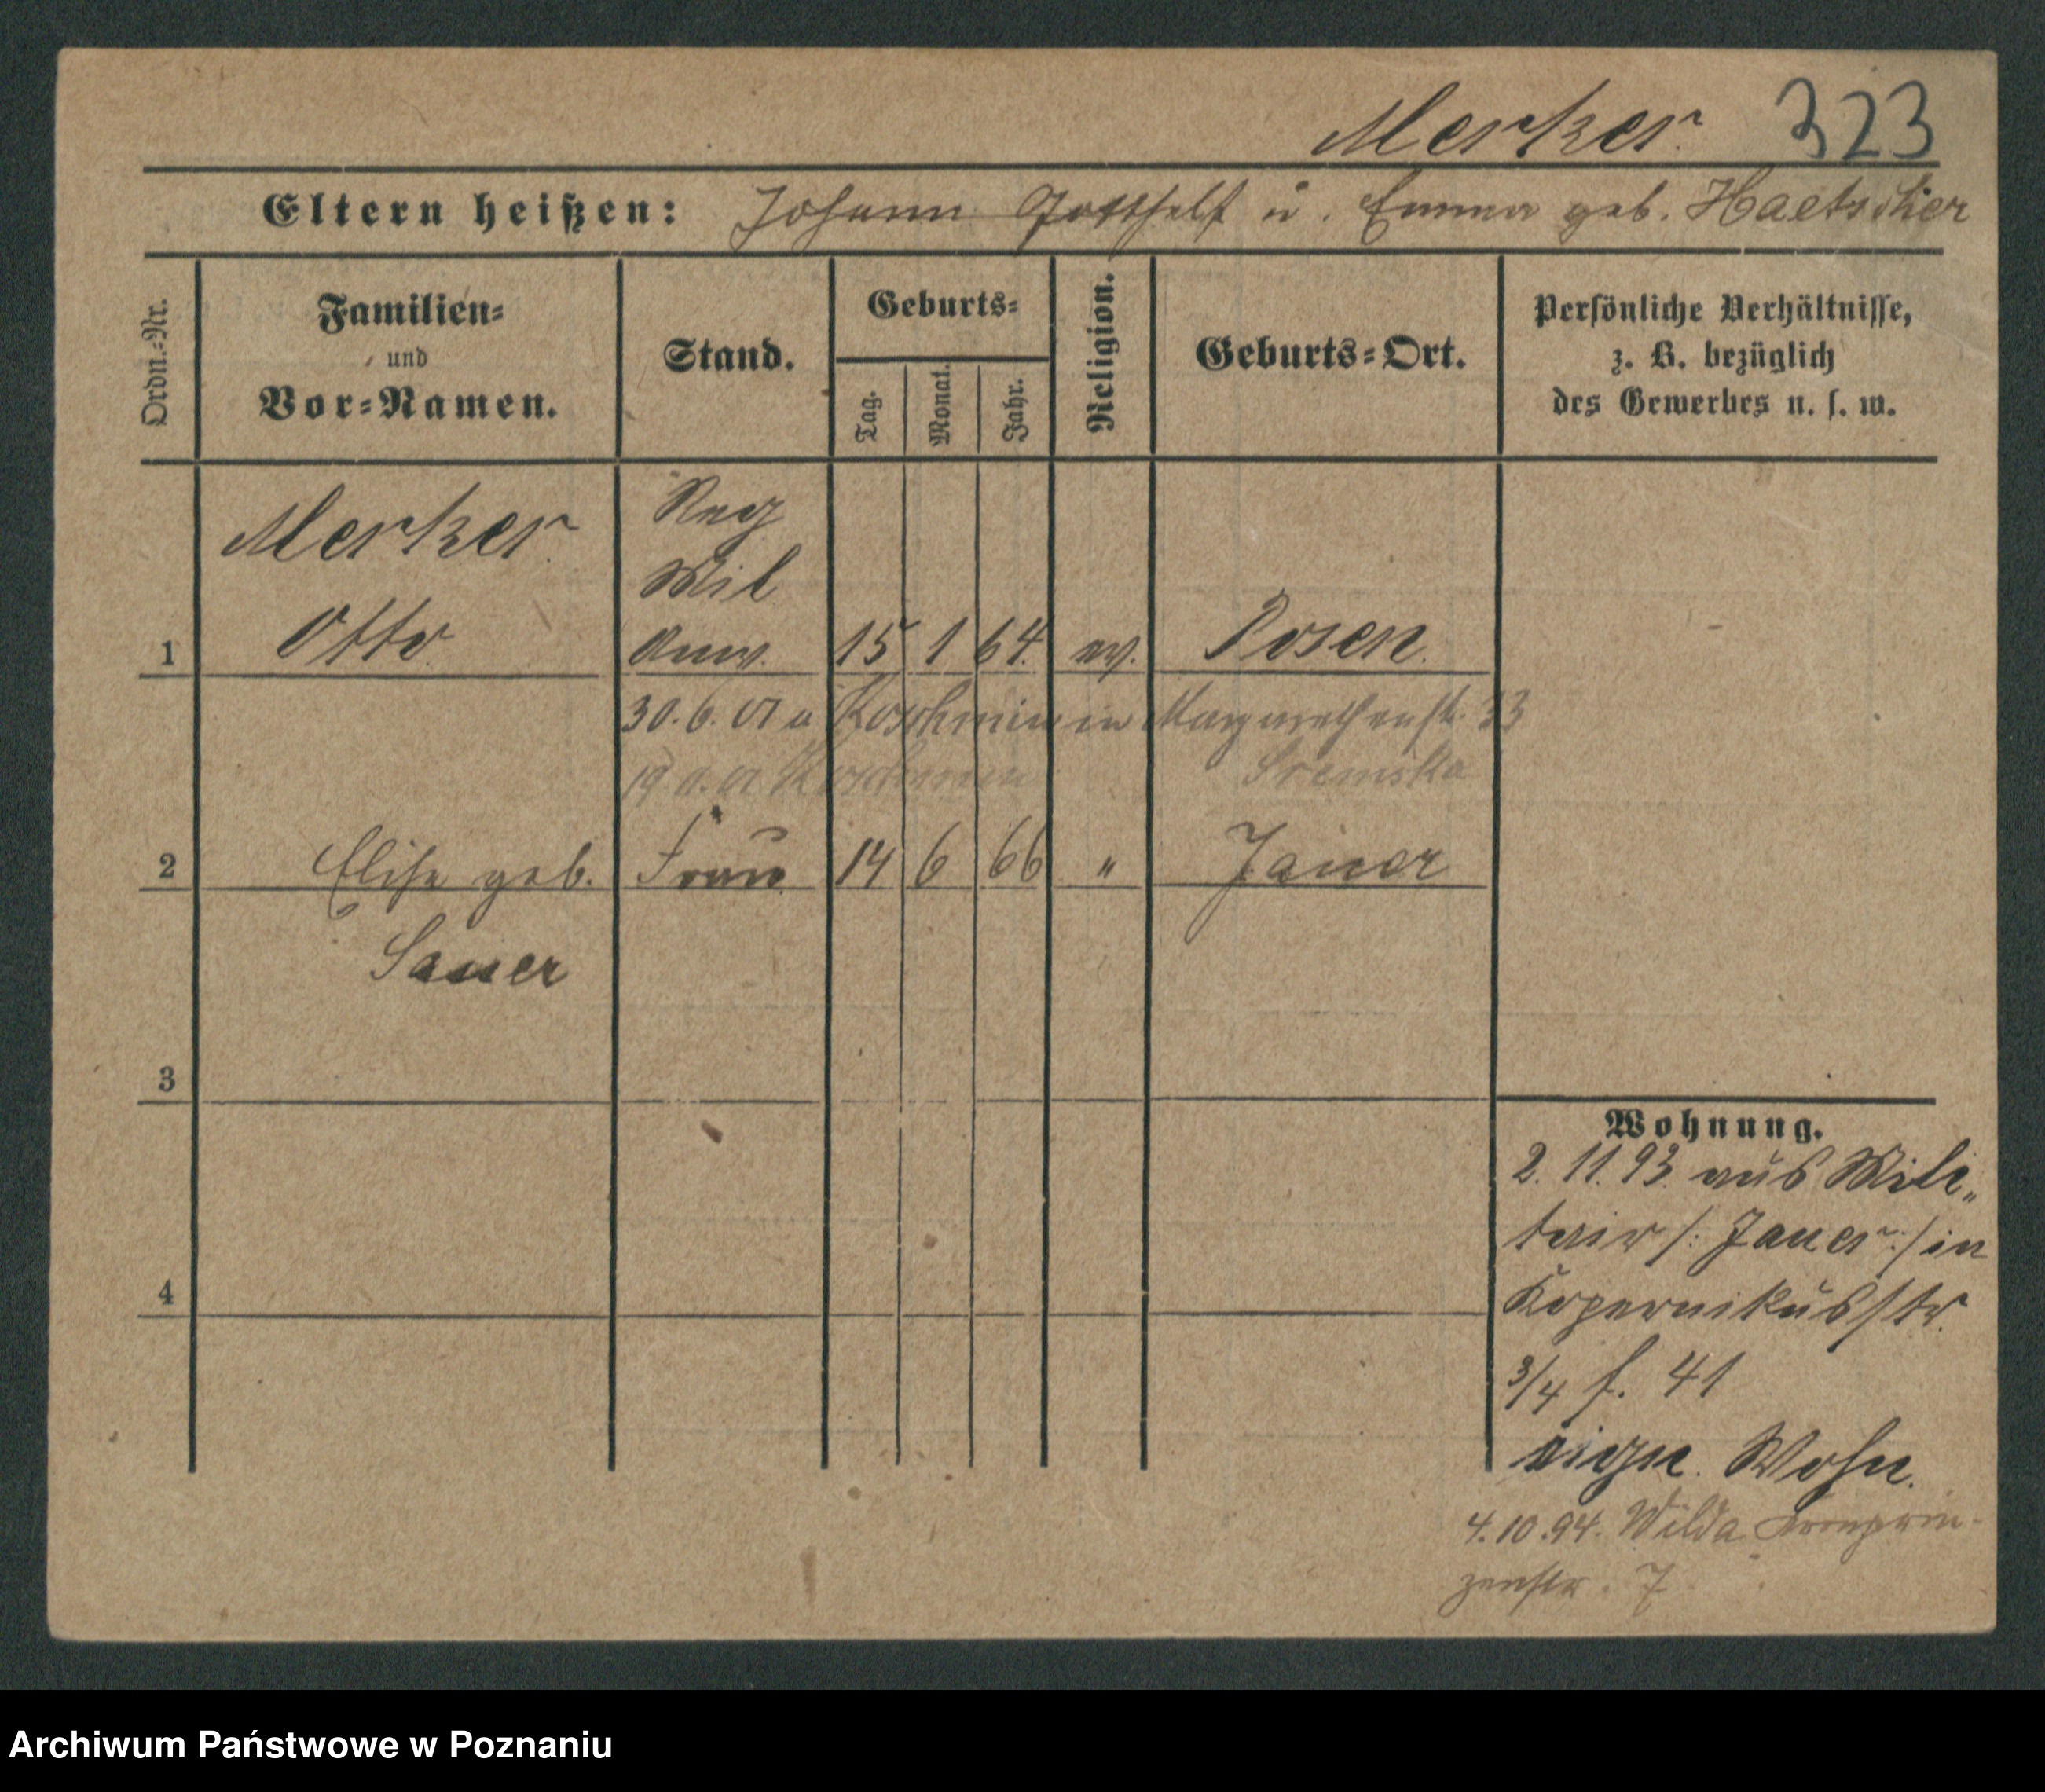 Merker. 323
Eltern heißen: Johann Gotthelf u. Emma geb. Haetscher
Ordn.-Nr.
Familien-
und
Vor-Namen.
Stand.
Geburts-
Tag.
Monat.
Jahr.
Religion.
Geburts-Ort.
Persönliche Verhältnisse,
z. B. bezüglich
des Gewerbes u. s. w.
Merker.
Reg
Mil
1 Otto Anw. 15 1 64. ev. Posen.
30. 6. 01 a Koschmin in Margarethenstr. 33
Koschmin Sremska
2 Elise geb. Frau 14 6 66 " Jauer
Sauer
3
4
Wohnung.
2. 11. 93. aus Mili„
tair /: Jauer :/ in
Kopernikusstr.
3/4 f. 41
eign. Wohn.
4. 10. 94. Wilda Kronprin-
zenstr. 7
Archiwum Państwowe w Poznaniu